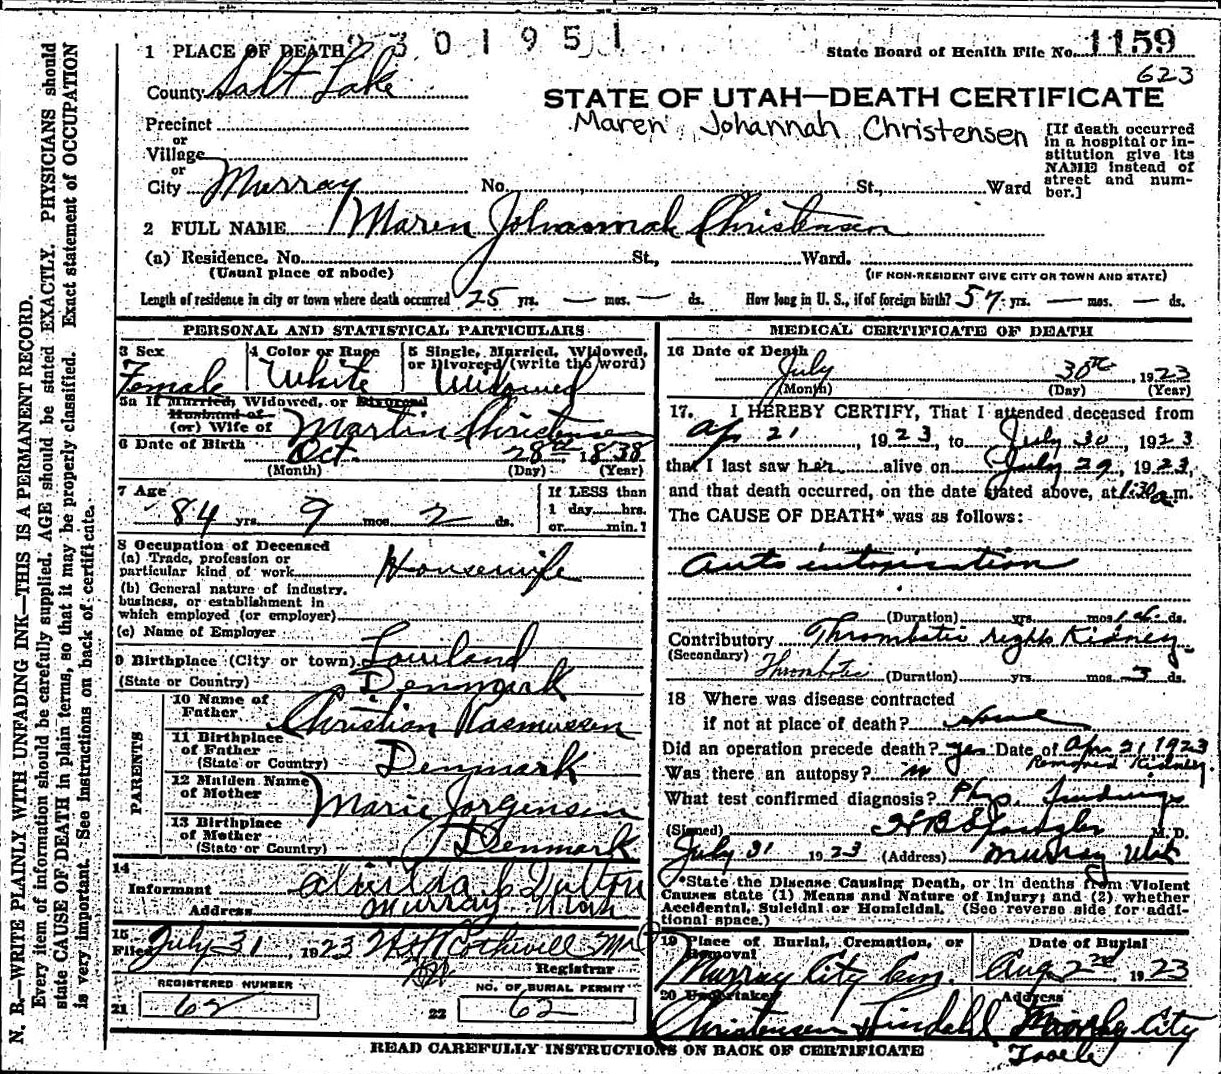 2301951
1 PLACE OF DEATH
State Board of Health File No. 1159
623
County Salt Lake
STATE OF UTAH—DEATH CERTIFICATE
Maren Johannah Christensen
Precinct
or
Village
or
City Murray No. St., Ward
[If death occurred
in a hospital or in-
stitution give its
NAME instead of
street and num-
ber.]
2 FULL NAME Maren Johannah Christensen
(a) Residence. No. St., Ward.
(Usual place of abode) (IF NON-RESIDENT GIVE CITY OR TOWN AND STATE)
Length of residence in city or town where death occurred 25 yrs. — mos. — ds. How long in U. S., if of foreign birth? 57 yrs. — mos. — ds.
PERSONAL AND STATISTICAL PARTICULARS
3 Sex 4 Color or Race 5 Single, Married, Widowed,
or Divorced (write the word)
Female White Widowed
5a If Married, Widowed, or Divorced
Husband of
(or) Wife of Martin Christensen
6 Date of Birth Oct. 28th 1838
(Month) (Day) (Year)
7 Age
84 yrs. 9 mos. 2 ds.
If LESS than
1 day hrs.
or min.?
8 Occupation of Deceased
(a) Trade, profession or
particular kind of work Housewife
(b) General nature of industry,
business, or establishment in
which employed (or employer)
(c) Name of Employer
9 Birthplace (City or town)
(State or Country) Denmark
PARENTS
10 Name of
Father Christian Rasmussen
11 Birthplace
of Father
(State or Country) Denmark
12 Maiden Name
of Mother Marie Jorgensen
13 Birthplace
of Mother
(State or Country) Denmark
14
Informant
Address Murray Utah
15
Filed July 31, 1923
Registrar
REGISTERED NUMBER NO. OF BURIAL PERMIT
21 62 22 62
MEDICAL CERTIFICATE OF DEATH
16 Date of Death
July 30th, 1923
(Month) (Day) (Year)
17. I HEREBY CERTIFY, That I attended deceased from
Ap 21, 1923, to July 30, 1923
that I last saw her alive on July 29, 1923,
and that death occurred, on the date stated above, at 1:30 a.m.
The CAUSE OF DEATH* was as follows:
Auto intoxication
(Duration) yrs. mos. ds.
Contributory Thrombotic right Kidney
(Secondary) Thrombotic (Duration) yrs. mos. 3 ds.
18 Where was disease contracted
if not at place of death? Home
Did an operation precede death? yes Date of Apr 21 1923
Removed Kidney.
Was there an autopsy? no
What test confirmed diagnosis? Phys. findings
(Signed) M. D.
July 31 1923 (Address) Murray Utah
*State the Disease Causing Death, or in deaths from Violent
Causes state (1) Means and Nature of Injury; and (2) whether
Accidental, Suicidal or Homicidal. (See reverse side for addi-
tional space.)
19 Place of Burial, Cremation, or
Removal
Date of Burial
Murray City Cem. Aug 2nd 1923
20 Undertaker Address
Christensen Lindahl Murray City
Tooele
READ CAREFULLY INSTRUCTIONS ON BACK OF CERTIFICATE
N. B.—WRITE PLAINLY WITH UNFADING INK—THIS IS A PERMANENT RECORD.
Every item of information should be carefully supplied. AGE should be stated EXACTLY. PHYSICIANS should
state CAUSE OF DEATH in plain terms, so that it may be properly classified. Exact statement of OCCUPATION
is very important. See instructions on back of certificate.